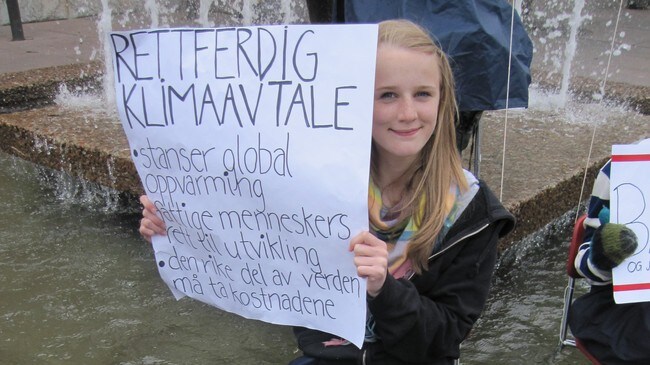 RETTFERDIG
KLIMAAVTALE
• stanser global
oppvarming
menneskers
rett til utvikling
• den rike del av verden
må ta kostnadene
B
OG